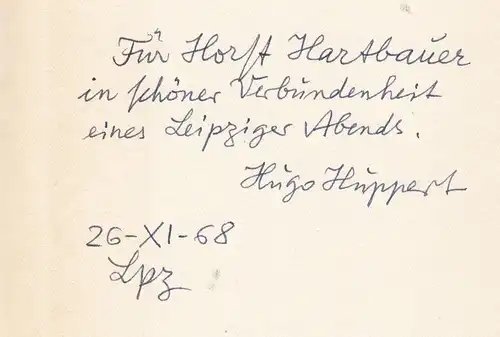 Für Horst Hartbauer
in schöner Verbundenheit
eines Leipziger Abends.
Hugo Huppert
26-XI-68
Lpz